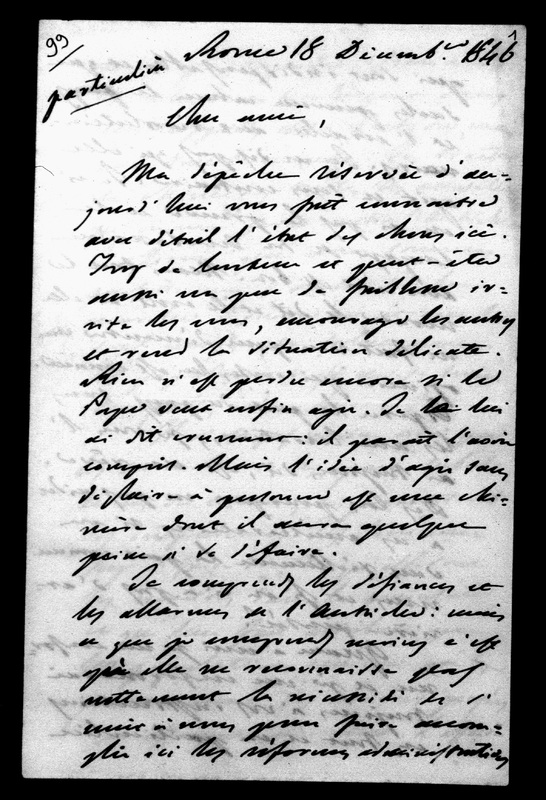 99
particulière
Rome 18 Décemb.re 1846
Cher ami,
Ma dépêche réservée d'au-
jourd'hui vous fait connaitre
avec détail l'état des choses ici.
Trop de lenteur et peut-être
aussi un peu de faiblesse ir-
rite les uns, encourage les autres
et rend la situation délicate.
Rien n'est perdu encore si le
Pape veut enfin agir. Je le lui
ai dit crument: il parait l'avoir
compris. Mais l'idée d'agir sans
déplaire à personne est une chi-
mère dont il aura quelque
peine à se défaire.
Je comprends les défiances et
les allarmes de l'Autriche: mais
ce que je comprends moins c'est
qu'elle ne reconnaisse pas
nettement la nécessité de s'
unir à nous pour faire accom-
plir ici les réformes administratives